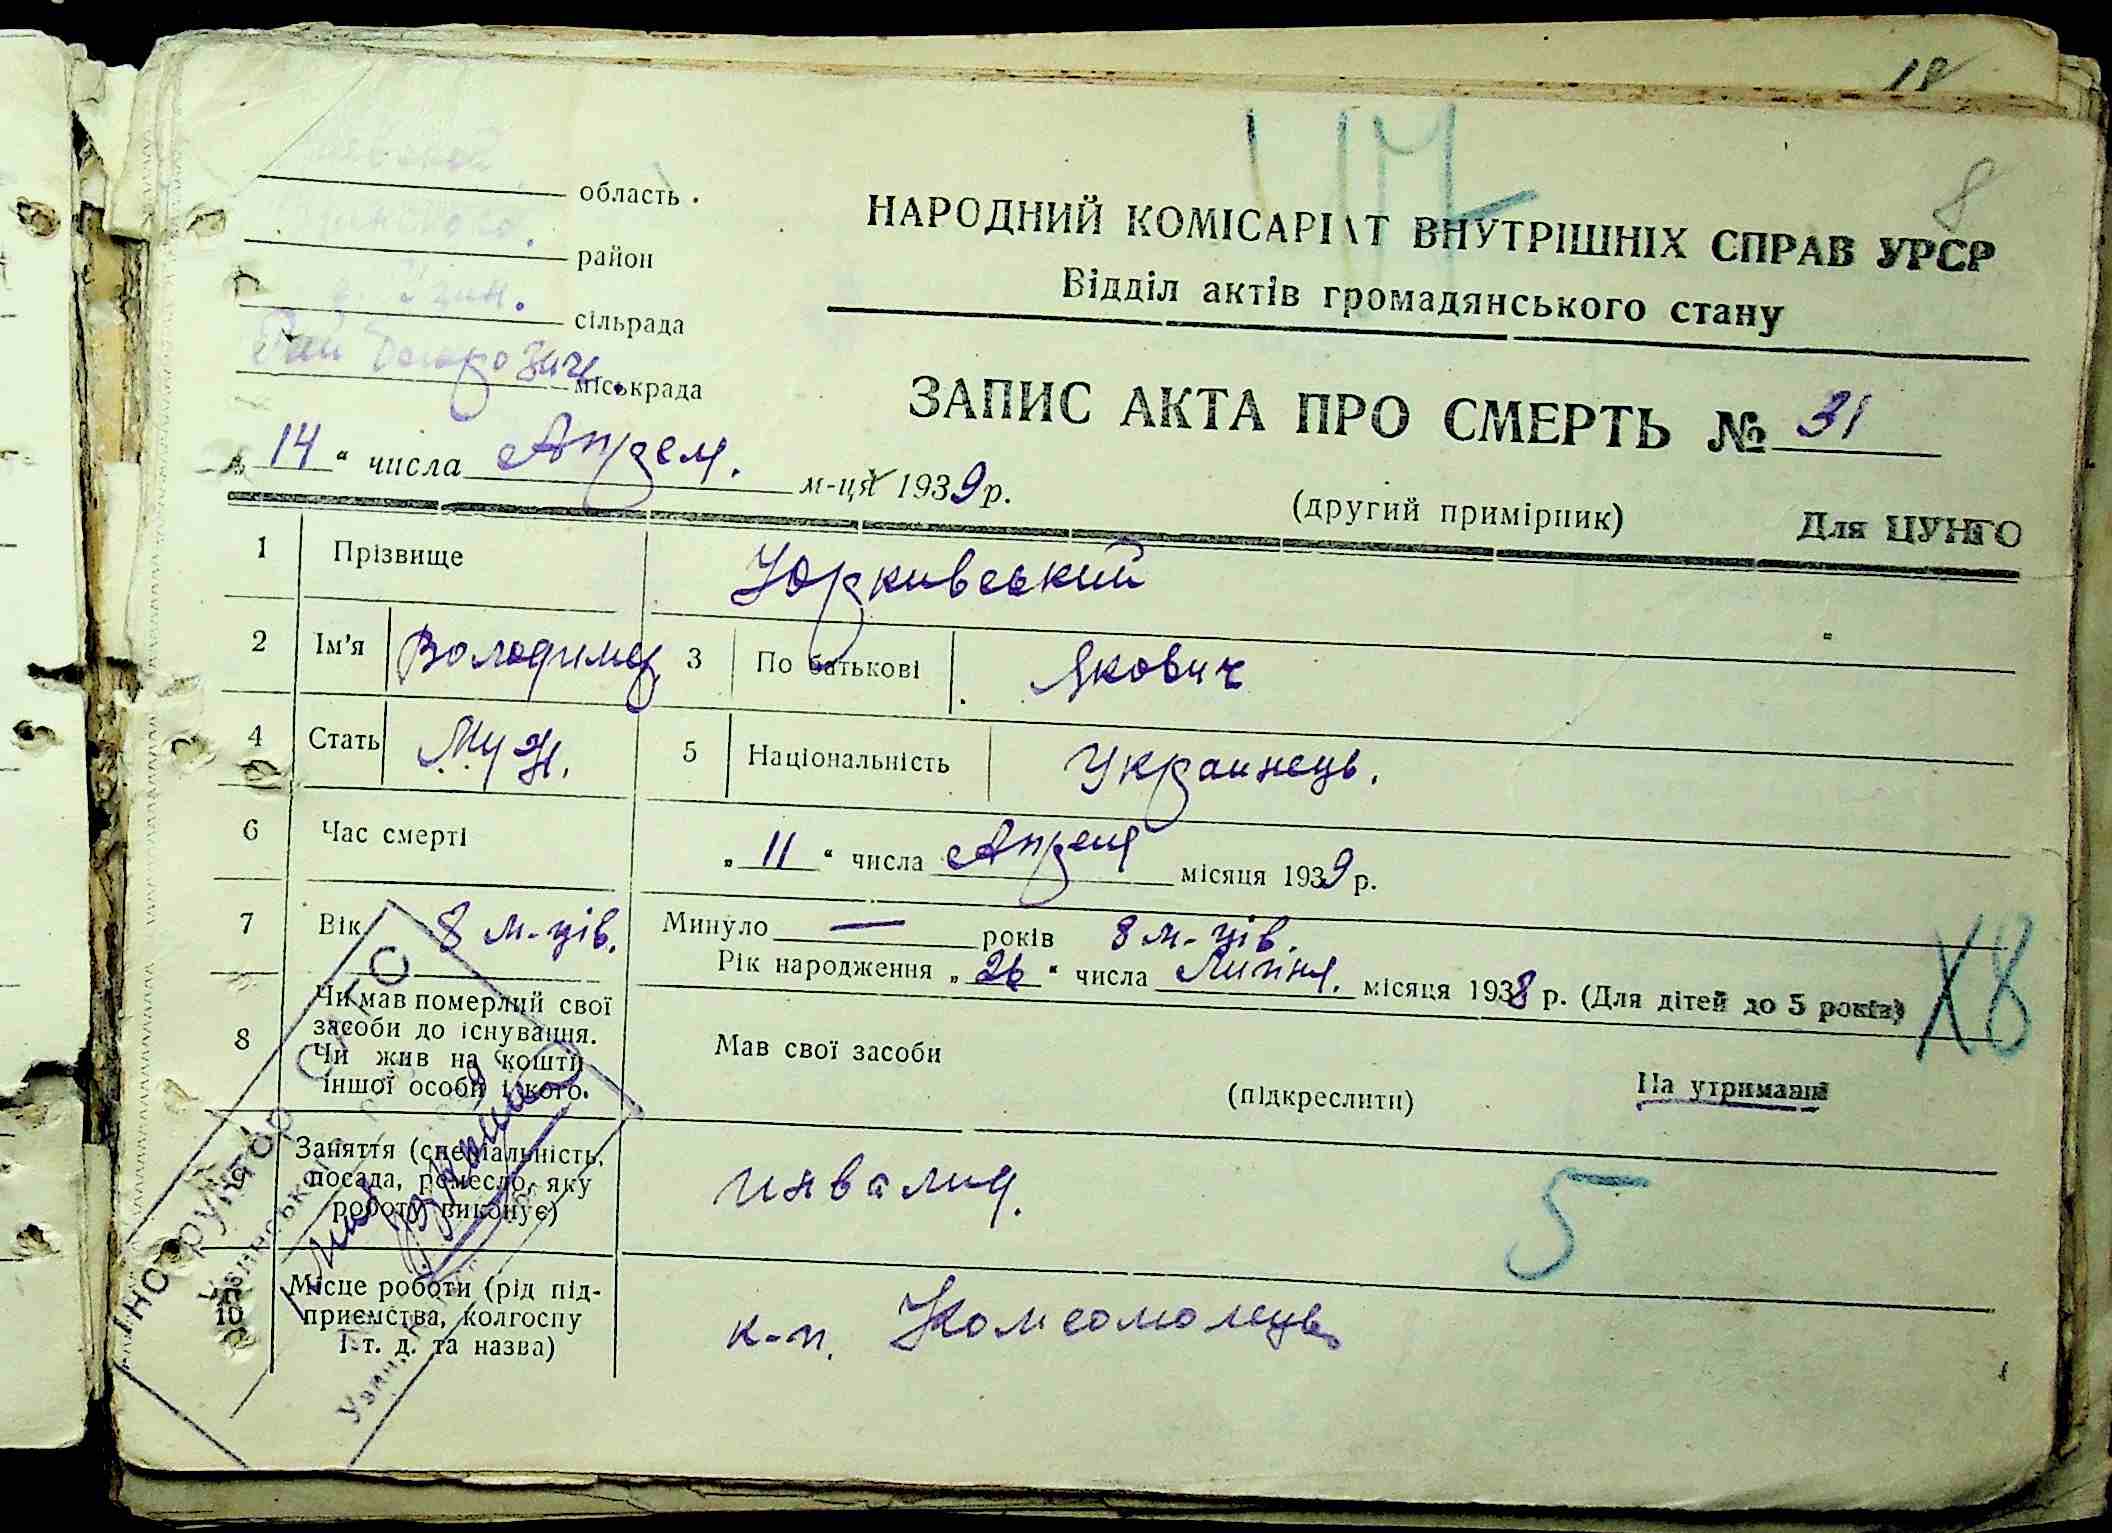 18
8
область
район
сільрада
міськрада
НАРОДНИЙ КОМІСАРІАТ ВНУТРІШНІХ СПРАВ УРСР
Відділ актів громадянського стану
ЗАПИС АКТА ПРО СМЕРТЬ № 31
„ 14 “ числа Апреля. м-ця 1939 р.
(другий примірник) Для ЦУНГО
1 Прізвище Юркивський
2 Ім'я Володимир 3 По батькові Якович
4 Стать Муж. 5 Національність Украинець.
6 Час смерті „ 11 “ числа Апреля місяця 1939 р.
7 Вік 8 м-ців. Минуло — років 8 м-ців.
Рік народження „ 26 “ числа Липня. місяця 1938 р. (Для дітей до 5 років)
Х8
8 Чи мав померлий свої засоби до існування. Чи жив на кошти іншої особи і кого.
Мав свої засоби (підкреслити) На утриманні
9 Заняття (спеціальність, посада, ремесло, яку роботу виконує)
инвалид.
5
10 Місце роботи (рід підприємства, колгоспу і т. д. та назва)
к-п. Комсомолець
Інструктор